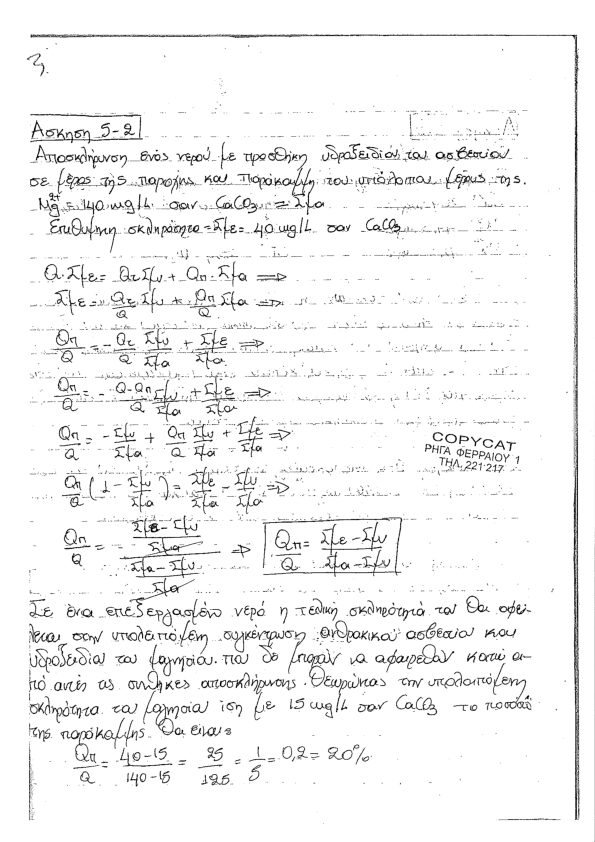 3.
Άσκηση 5-2
Αποσκλήρυνση ενός νερού με προσθήκη υδροξειδίου του ασβεστίου
σε μέρος της παροχής και παράκαμψη του υπόλοιπου μέρους της.
Mg²⁺ = 140 mg/L σαν CaCO₃ = Σμα
Επιθυμητή σκληρότητα = Σμε = 40 mg/L σαν CaCO₃
Q·Σμε = Qτ Σμυ + Qπ·Σμα ⇒
Σμε = Qτ/Q Σμυ + Qπ/Q Σμα ⇒
Qπ/Q = - Qτ/Q Σμυ/Σμα + Σμε/Σμα ⇒
Qπ/Q = - Q-Qπ/Q Σμυ/Σμα + Σμε/Σμα ⇒
Qπ/Q = - Σμυ/Σμα + Qπ/Q Σμυ/Σμα + Σμε/Σμα ⇒
COPYCAT
ΡΗΓΑ ΦΕΡΡΑΙΟΥ 1
ΤΗΛ. 221·217
Qπ/Q (1 - Σμυ/Σμα) = Σμε/Σμα - Σμυ/Σμα ⇒
Qπ/Q = (Σμε - Σμυ / Σμα) / (Σμα - Σμυ / Σμα) ⇒ Qπ/Q = Σμε - Σμυ / Σμα - Σμυ
Σε ένα επεξεργασμένο νερό η τελική σκληρότητά του θα οφεί-
λεται στην υπολειπόμενη συγκέντρωση ανθρακικού ασβεστίου και
υδροξειδίου του μαγνησίου που δε μπορούν να αφαιρεθούν κάτω α-
πό αυτές τις συνθήκες αποσκλήρυνσης. Θεωρώντας την υπολειπόμενη
σκληρότητα του μαγνησίου ίση με 15 mg/L σαν CaCO₃ το ποσοστό
της παράκαμψης θα είναι:
Qπ/Q = 40-15/140-15 = 25/125 = 1/5 = 0,2 = 20%